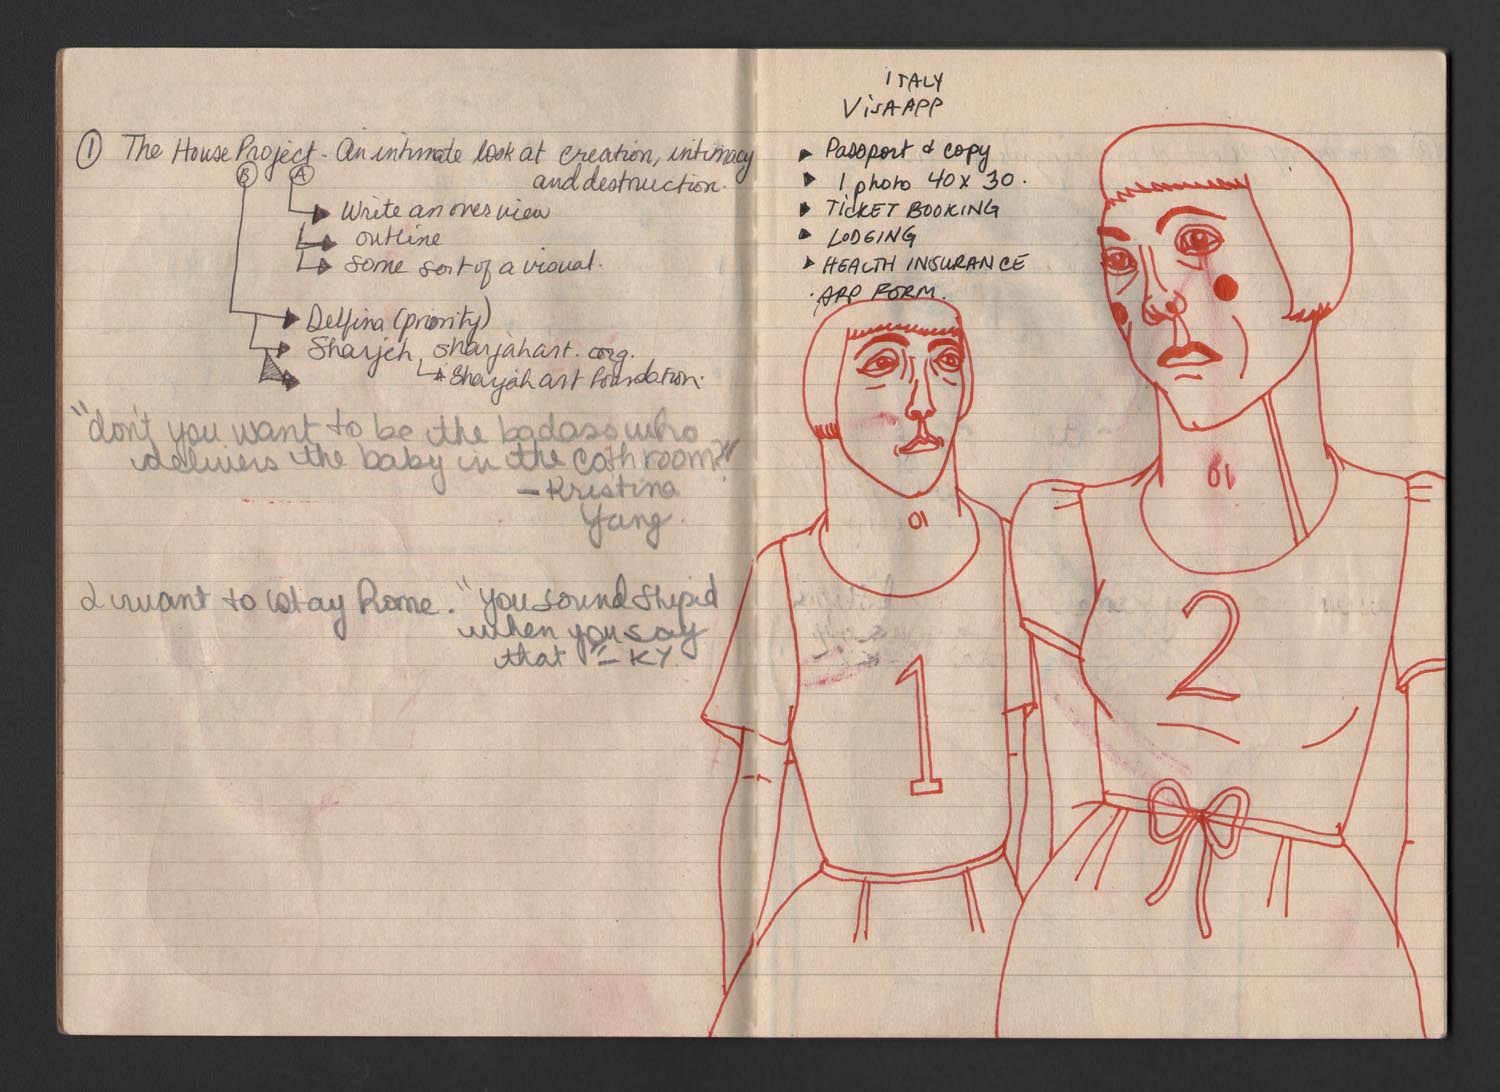 ① The House Project - An intimate look at creation, intimacy
and destruction.
B A
Write an overview
outline
some sort of a visual.
Delfina (priority)
Sharjeh, sharjahart.org.
Sharjah art foundation.
"don't you want to be the badass who
delivers the baby in the cath room?"
- Kristina
Yang.
I want to stay Rome. "you sound stupid
when you say
that" - KY.
ITALY
VISA APP
Passport & copy
1 photo 40x30.
TICKET BOOKING
LODGING
HEALTH INSURANCE
APP FORM.
01
01
1
2